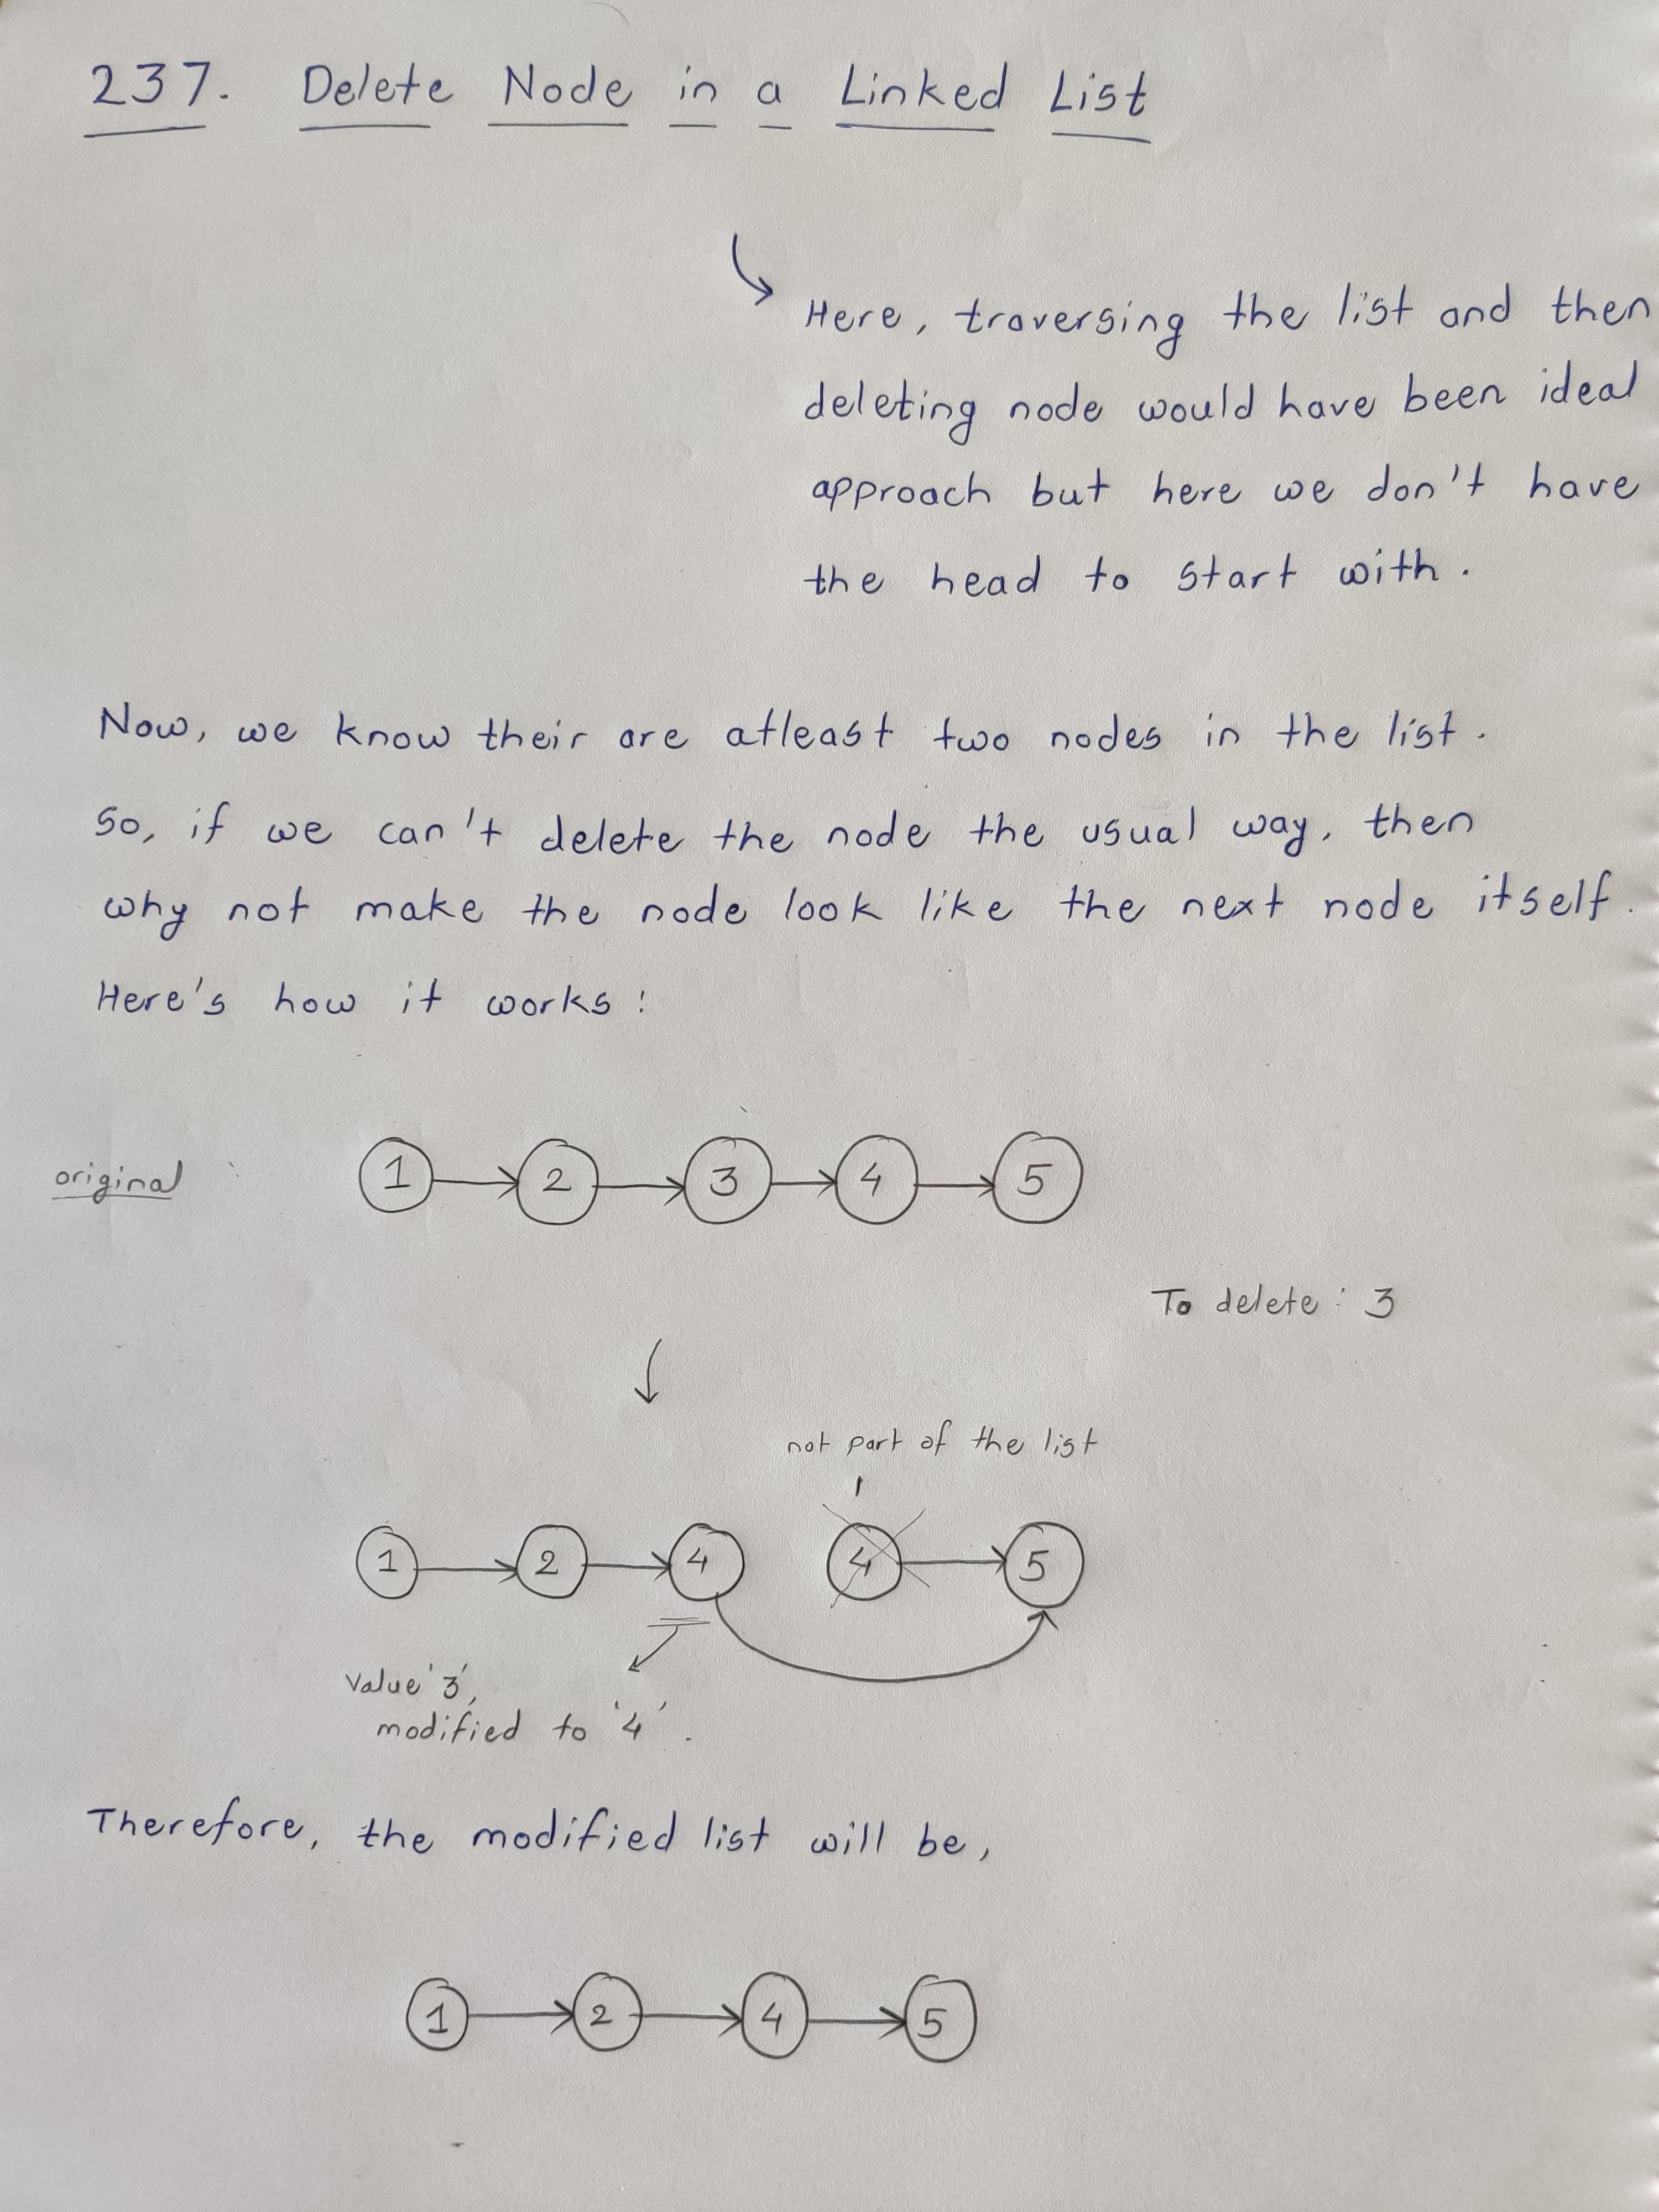 237. Delete Node in a Linked List
Here, traversing the list and then
deleting node would have been ideal
approach but here we don't have
the head to start with.
Now, we know their are atleast two nodes in the list.
So, if we can't delete the node the usual way, then
why not make the node look like the next node itself.
Here's how it works:
original
1 2 3 4 5
To delete: 3
not part of the list
1 2 4 4 5
Value '3',
modified to '4'.
Therefore, the modified list will be,
1 2 4 5